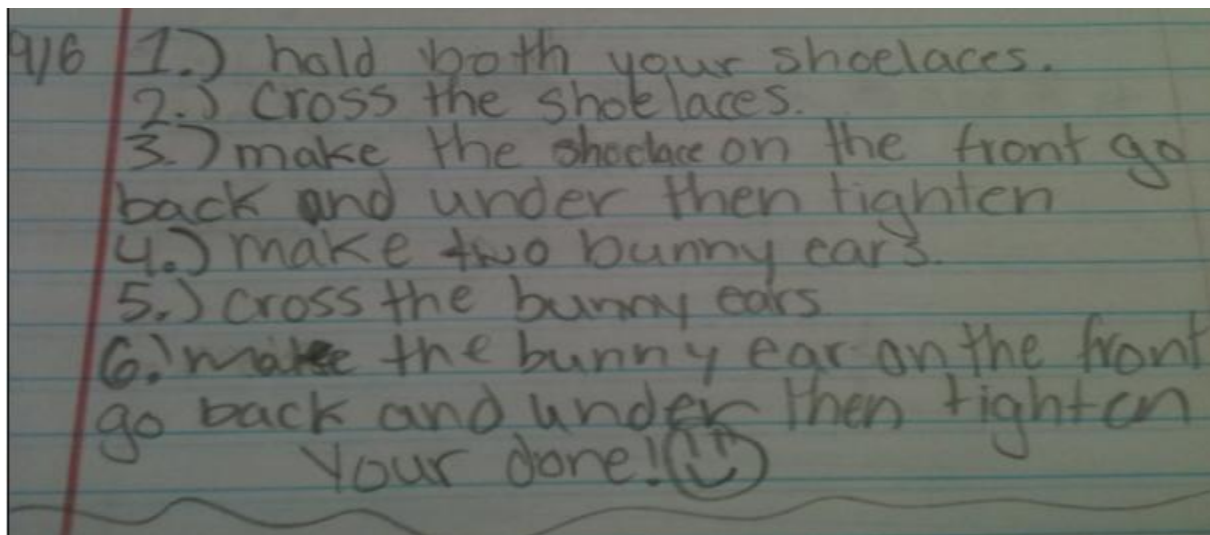 9/6 1.) hold both your shoelaces.
2.) cross the shoelaces.
3.) make the shoelace on the front go
back and under then tighten
4.) make two bunny ears.
5.) cross the bunny ears
6.) make the bunny ear on the front
go back and under then tighten
Your done!